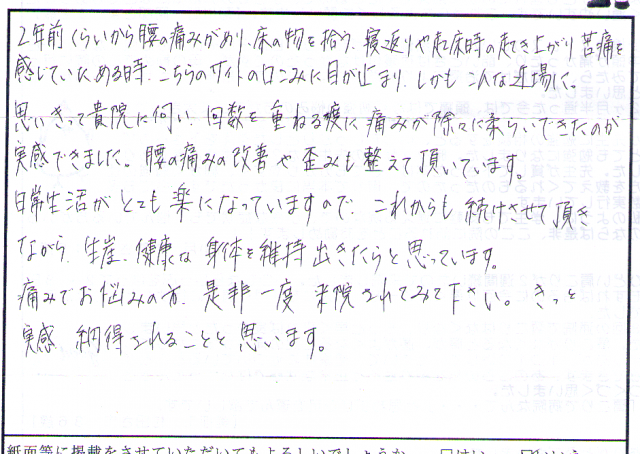 2年前くらいから腰の痛みがあり、床の物を拾う、寝返りや起床時の起き上がり苦痛を
感じていた。ある時、こちらのサイトの口こみに目が止まり、しかもこんな近場に。
思いきって貴院に伺い、回数を重ねる度に痛みが除々に柔らいできたのが
実感できました。腰の痛みの改善や歪みも整えて頂いています。
日常生活がとても楽になっていますので、これからも続けさせて頂き
ながら、生崖、健康な身体を維持出きたらと思っています。
痛みでお悩みの方、是非一度来院されてみて下さい。きっと
実感、納得されることと思います。
紙面等に掲載をさせていただいてもよろしいでしょうか